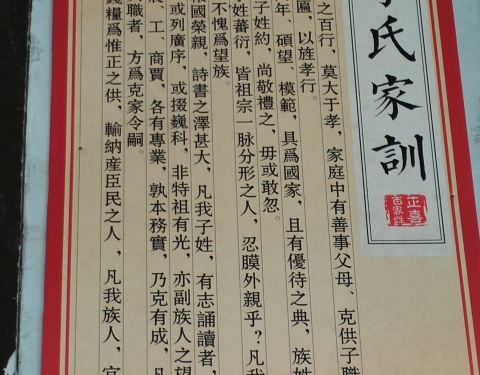 氏家訓
正喜
百家姓
之百行，莫大于孝，家庭中有善事父母、克供子職
匾，以旌孝行。
年、碩望、模範，具爲國家，且有優待之典，族姓
子姓約　尚敬禮之，毋或敢忽。
姓蕃衍，皆祖宗一脉分形之人，忍膜外親乎？凡我
不愧爲望族。
國榮親，詩書之澤甚大，凡我子姓，有志誦讀者，
或列廣序，或掇巍科，非特祖有光，亦副族人之望
農、工、商賈，各有專業，孰本務實，乃克有成，凡
職者，方爲克家令嗣。
錢糧爲惟正之供，輸納産臣民之人，凡我族人，宜